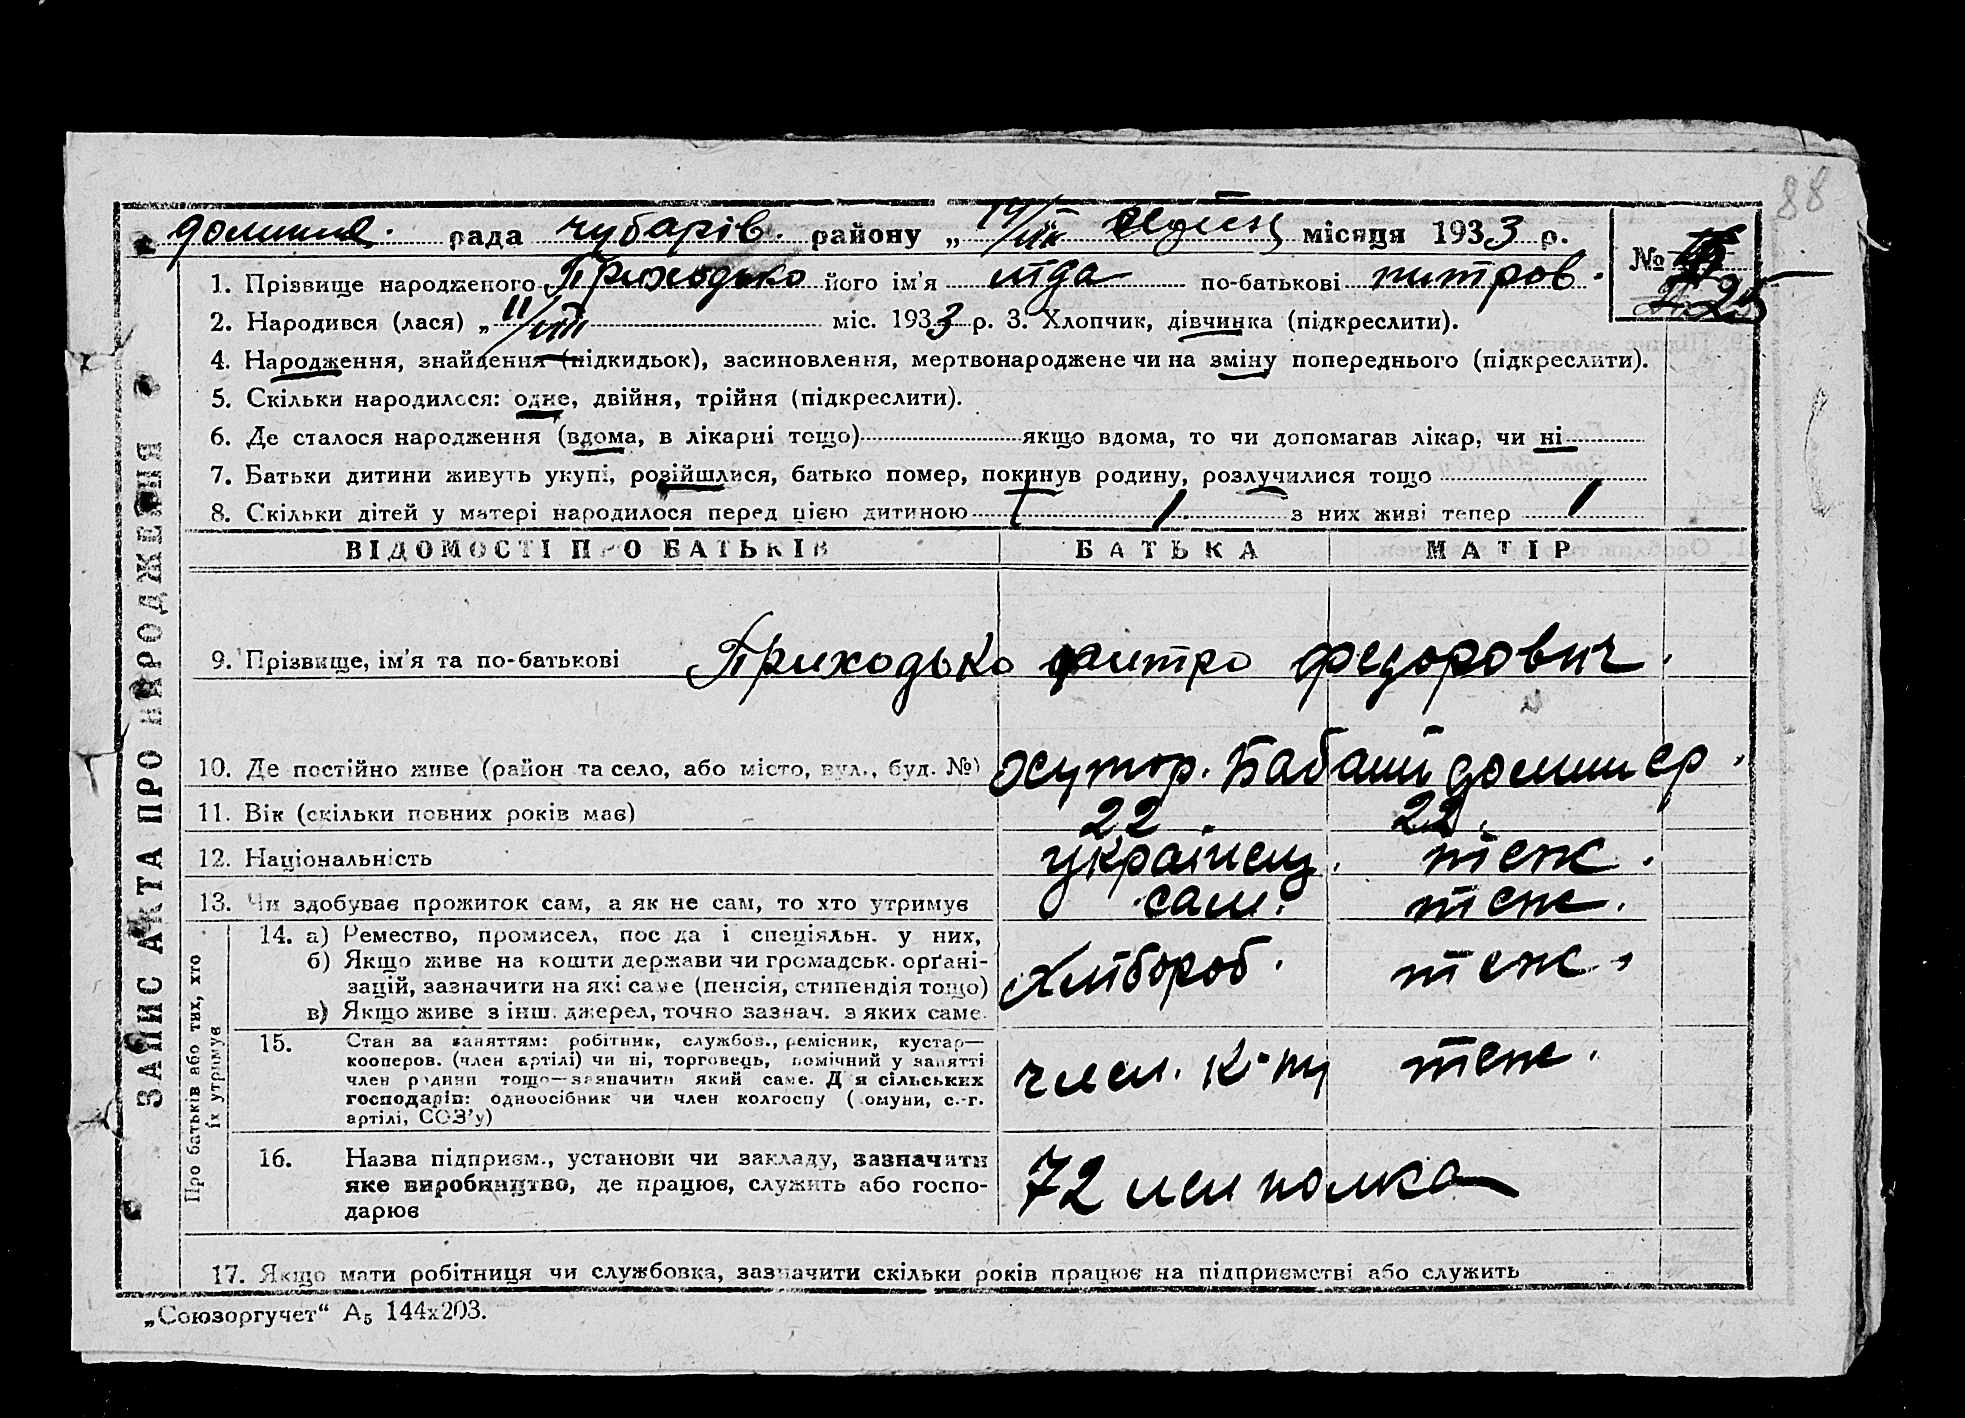 88
рада чубарів. району „ місяця 1933 р.
№ 25
1. Прізвище народженого Приходько його ім'я ліда по-батькові митров.
2. Народився (лася) „ 11/VIII міс. 1933 р. 3. Хлопчик, дівчинка (підкреслити).
4. Народження, знайдення (підкидьок), засиновлення, мертвонароджене чи на зміну попереднього (підкреслити).
5. Скільки народилося: одне, двійня, трійня (підкреслити).
6. Де сталося народження (вдома, в лікарні тощо) якщо вдома, то чи допомагав лікар, чи ні
7. Батьки дитини живуть укупі, розійшлися, батько помер, покинув родину, розлучилися тощо
8. Скільки дітей у матері народилося перед цією дитиною 1 з них живі тепер 1
ЗАПИС АКТА ПРО НАРОДЖЕННЯ
ВІДОМОСТІ ПРО БАТЬКІВ БАТЬКА МАТІР
9. Прізвище, ім'я та по-батькові Приходько митро федорович.
10. Де постійно живе (район та село, або місто, вул., буд. №) хутор. Бабаши
11. Вік (скільки повних років має) 22 22.
12. Національність українец. теж.
13. Чи здобуває прожиток сам, а як не сам, то хто утримує сам. теж.
Про батьків або тих, хто їх утримує
14. а) Ремество, промисел, посада і спеціяльн. у них,
б) Якщо живе на кошти держави чи громадськ. орґані-
зацій, зазначити на які саме (пенсія, стипендія тощо) Хлібороб. теж.
в) Якщо живе з інш. джерел, точно зазнач. з яких саме.
15. Стан за заняттям: робітник, службов., ремісник, кустар—
кооперов. (член артілі) чи ні, торговець, помічний у занятті
член родини тощо—зазначити який саме. Для сільських
господарів: одноосібник чи член колгоспу (комуни, с.-г.
артілі, СОЗ'у) член. к-пу теж.
16. Назва підприєм., установи чи закладу, зазначити
яке виробництво, де працює, служить або госпо-
дарює 72 полка
17. Якщо мати робітниця чи службовка, зазначити скільки років працює на підприємстві або служить
„Союзоргучет“ А₅ 144х203.